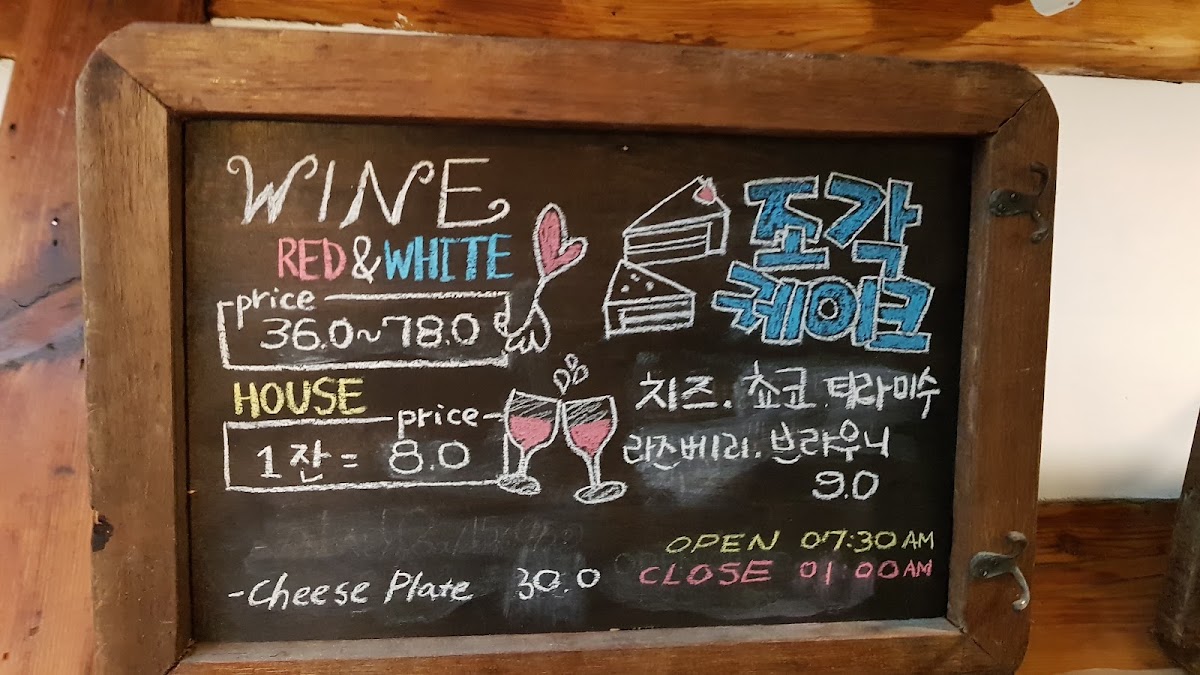 WINE
RED & WHITE
price
36.0~78.0
HOUSE
price
1잔 = 8.0
-Cheese Plate 30.0
조각
케이크
치즈. 쵸코 티라미수
라즈베리. 브라우니
9.0
OPEN 07:30 AM
CLOSE 01:00 AM